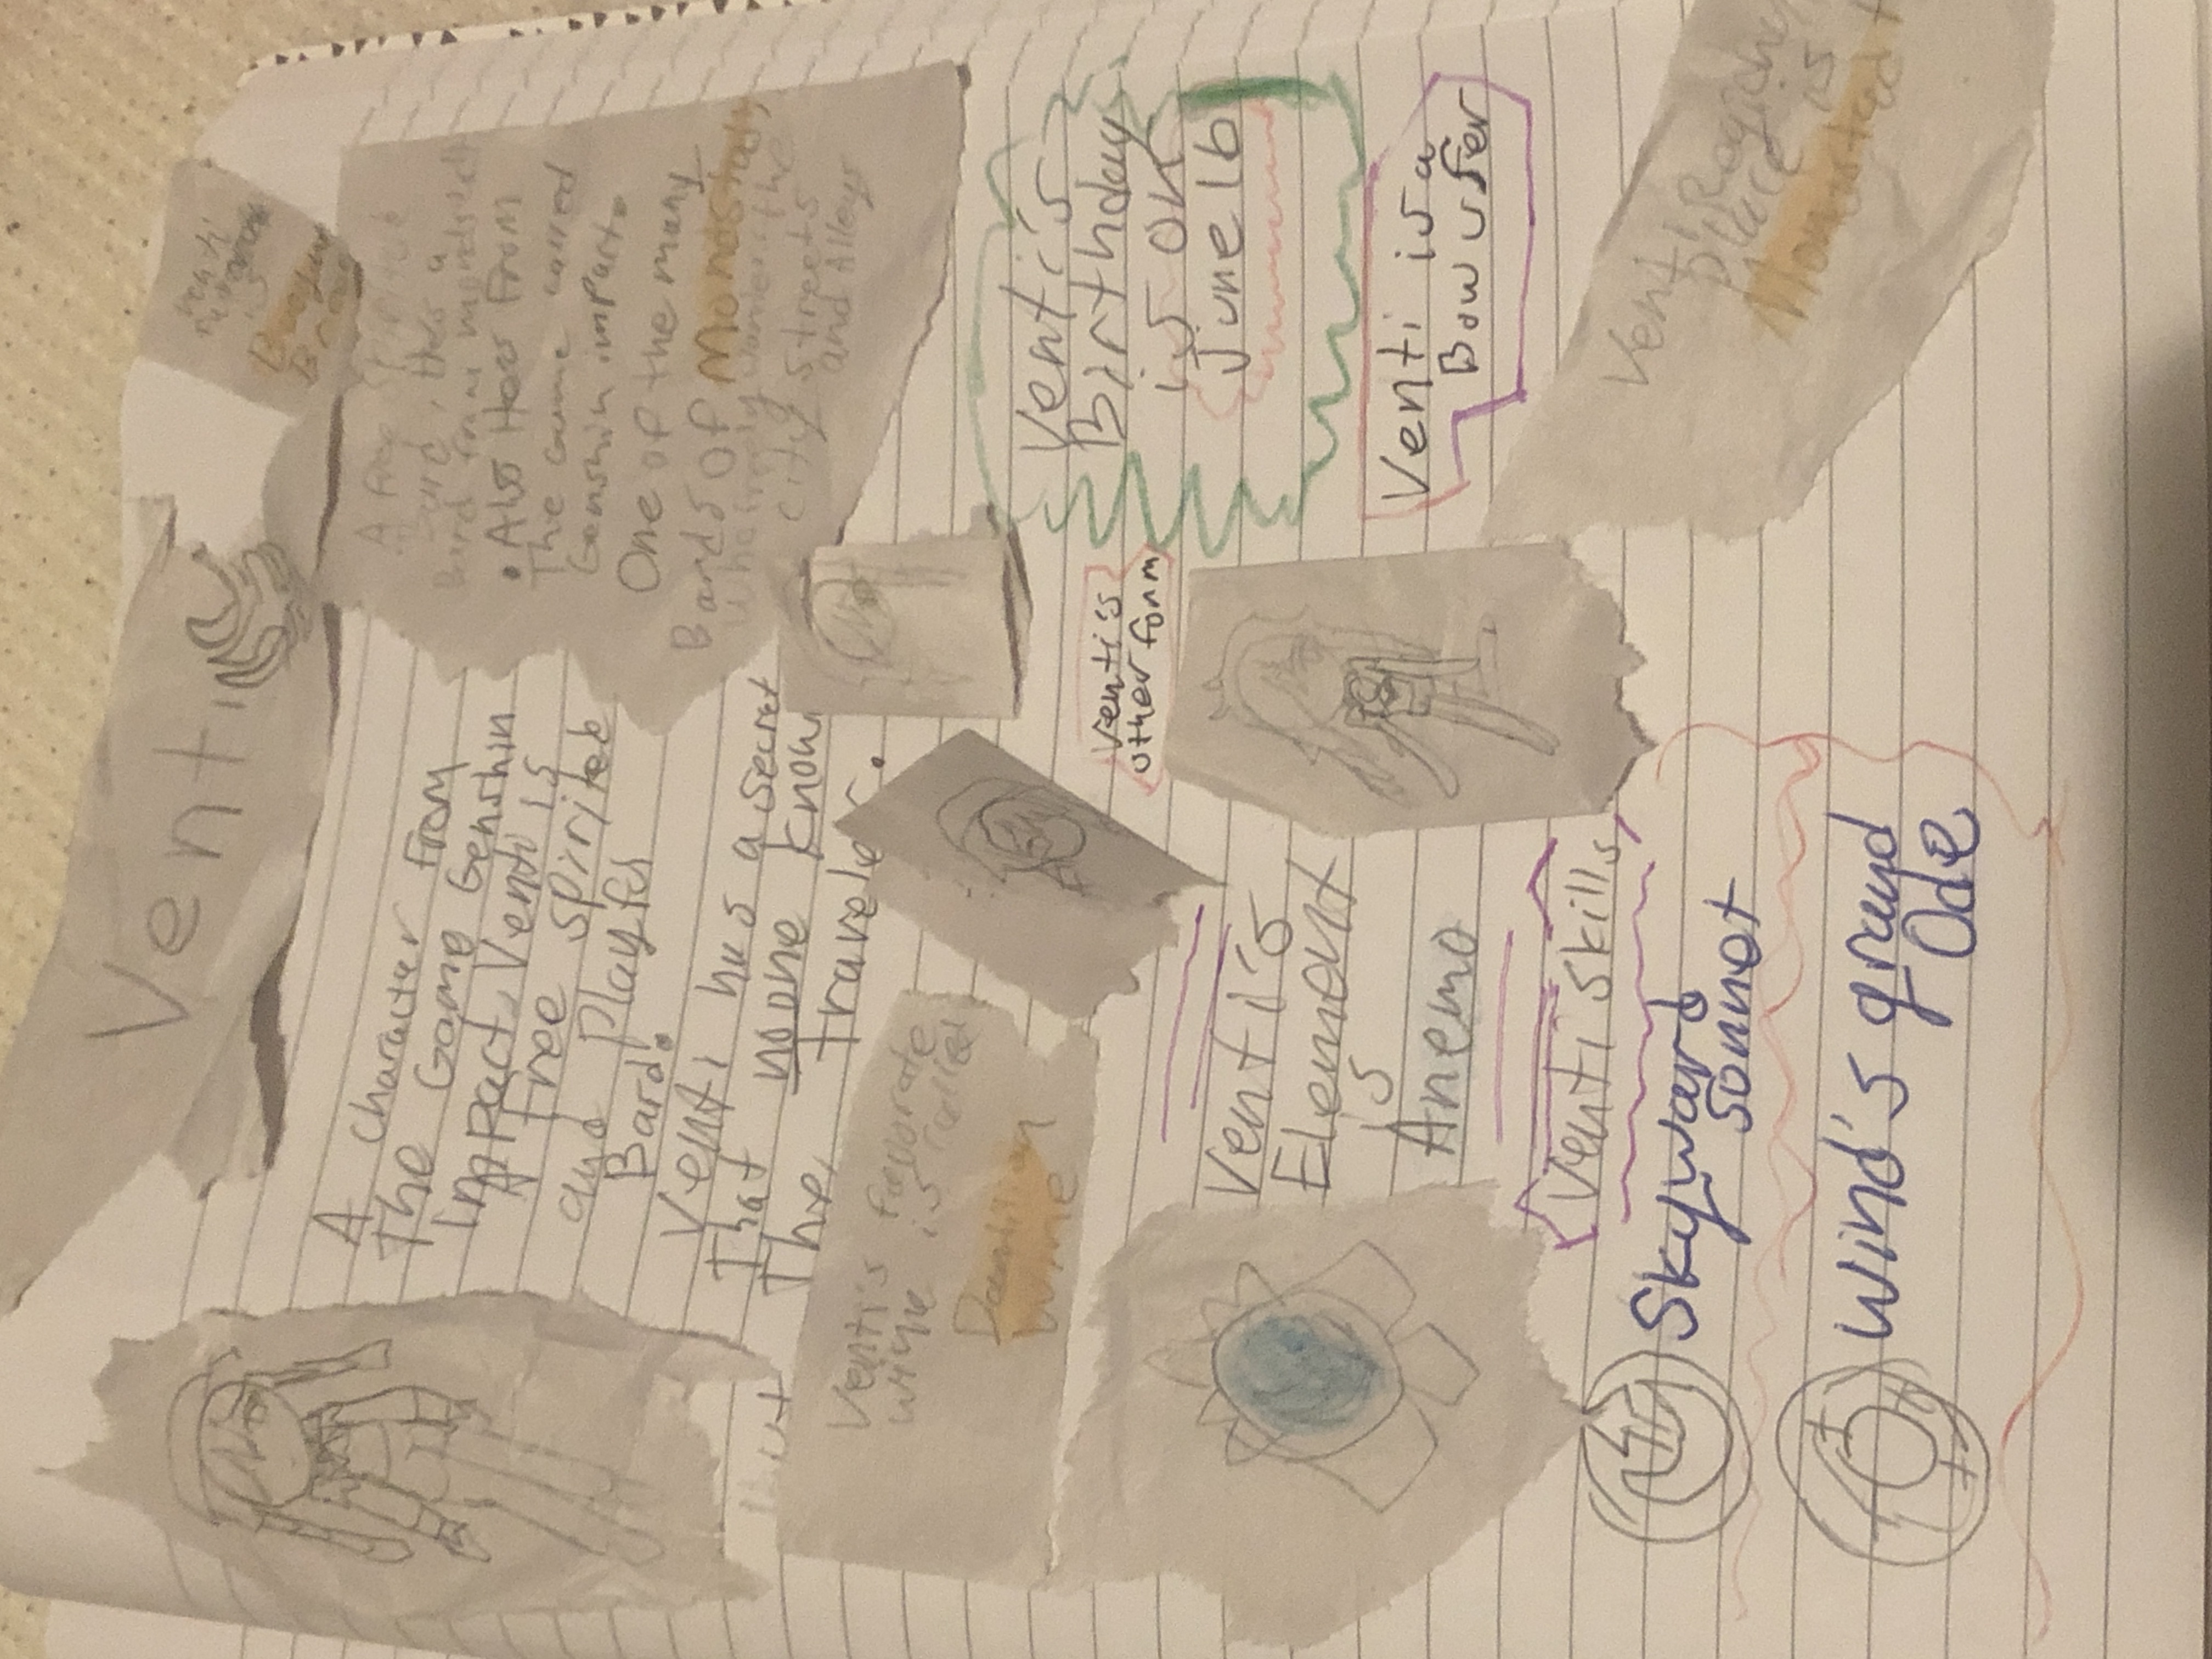 Venti
A Character From
The Game Genshin
Impact, Venti is
A free spirited
and playful
Bard.
Venti has a secret
That noone know
The, traveler.
Venti's favorate
wine is called
Dandilion
wine
Venti's
Element
is
Anemo
Venti skills
Skyward
sonnet
Wind's grand
Ode
A free spirited
Bard
• Also Hes From
The Game called
Genshin impact.
One of the many
Bards Of Monstadt,
who freely wanders the
city streets
and Alleys
Venti's
Birthday
is on
june 16
Venti's
other form
Venti is a
Bow user
Venti,
place is
Monstadt